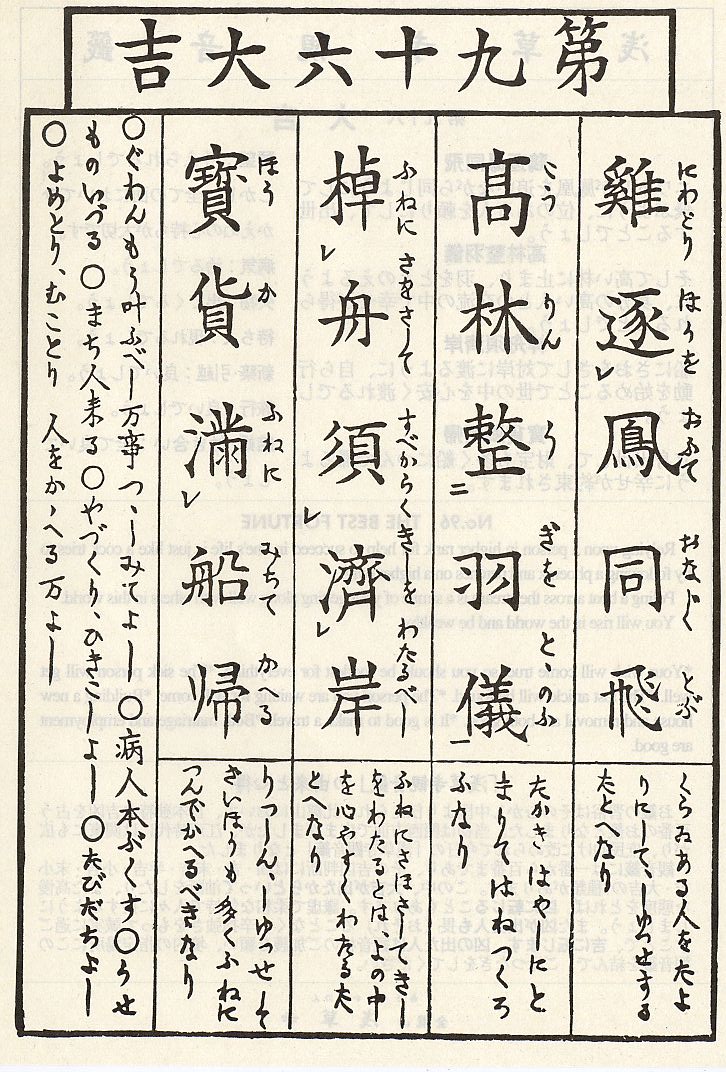 第九十六大吉
にわとり ほうを おふて おなじく とぶ
雞逐レ鳳同飛
くらゐある人をたよ
りにして、しゆつせする
たとへなり
こうりん うぎを とゝのふ
高林整二羽儀一
たかきはやしにと
まりてはねつくろ
ふなり
ふねに さほさして すべからく きしを わたるべし
棹レ舟須レ濟レ岸
ふねにさほさしてきし
をわたるとは、よの中
を心やすくわたるた
とへなり
ほうか ふねに みちて かへる
寶貨滿レ船歸
りつしん、しゆつせして
さいほうも多くふねに
つんでかへるべきなり
○ぐわんもう叶ふべし万事つゝしみてよし○病人本ぶくす○うせ
ものいづる○まち人来る○やづくり、ひきこしよし○たびだちよし
○よめとり、むことり 人をかゝへる万よし